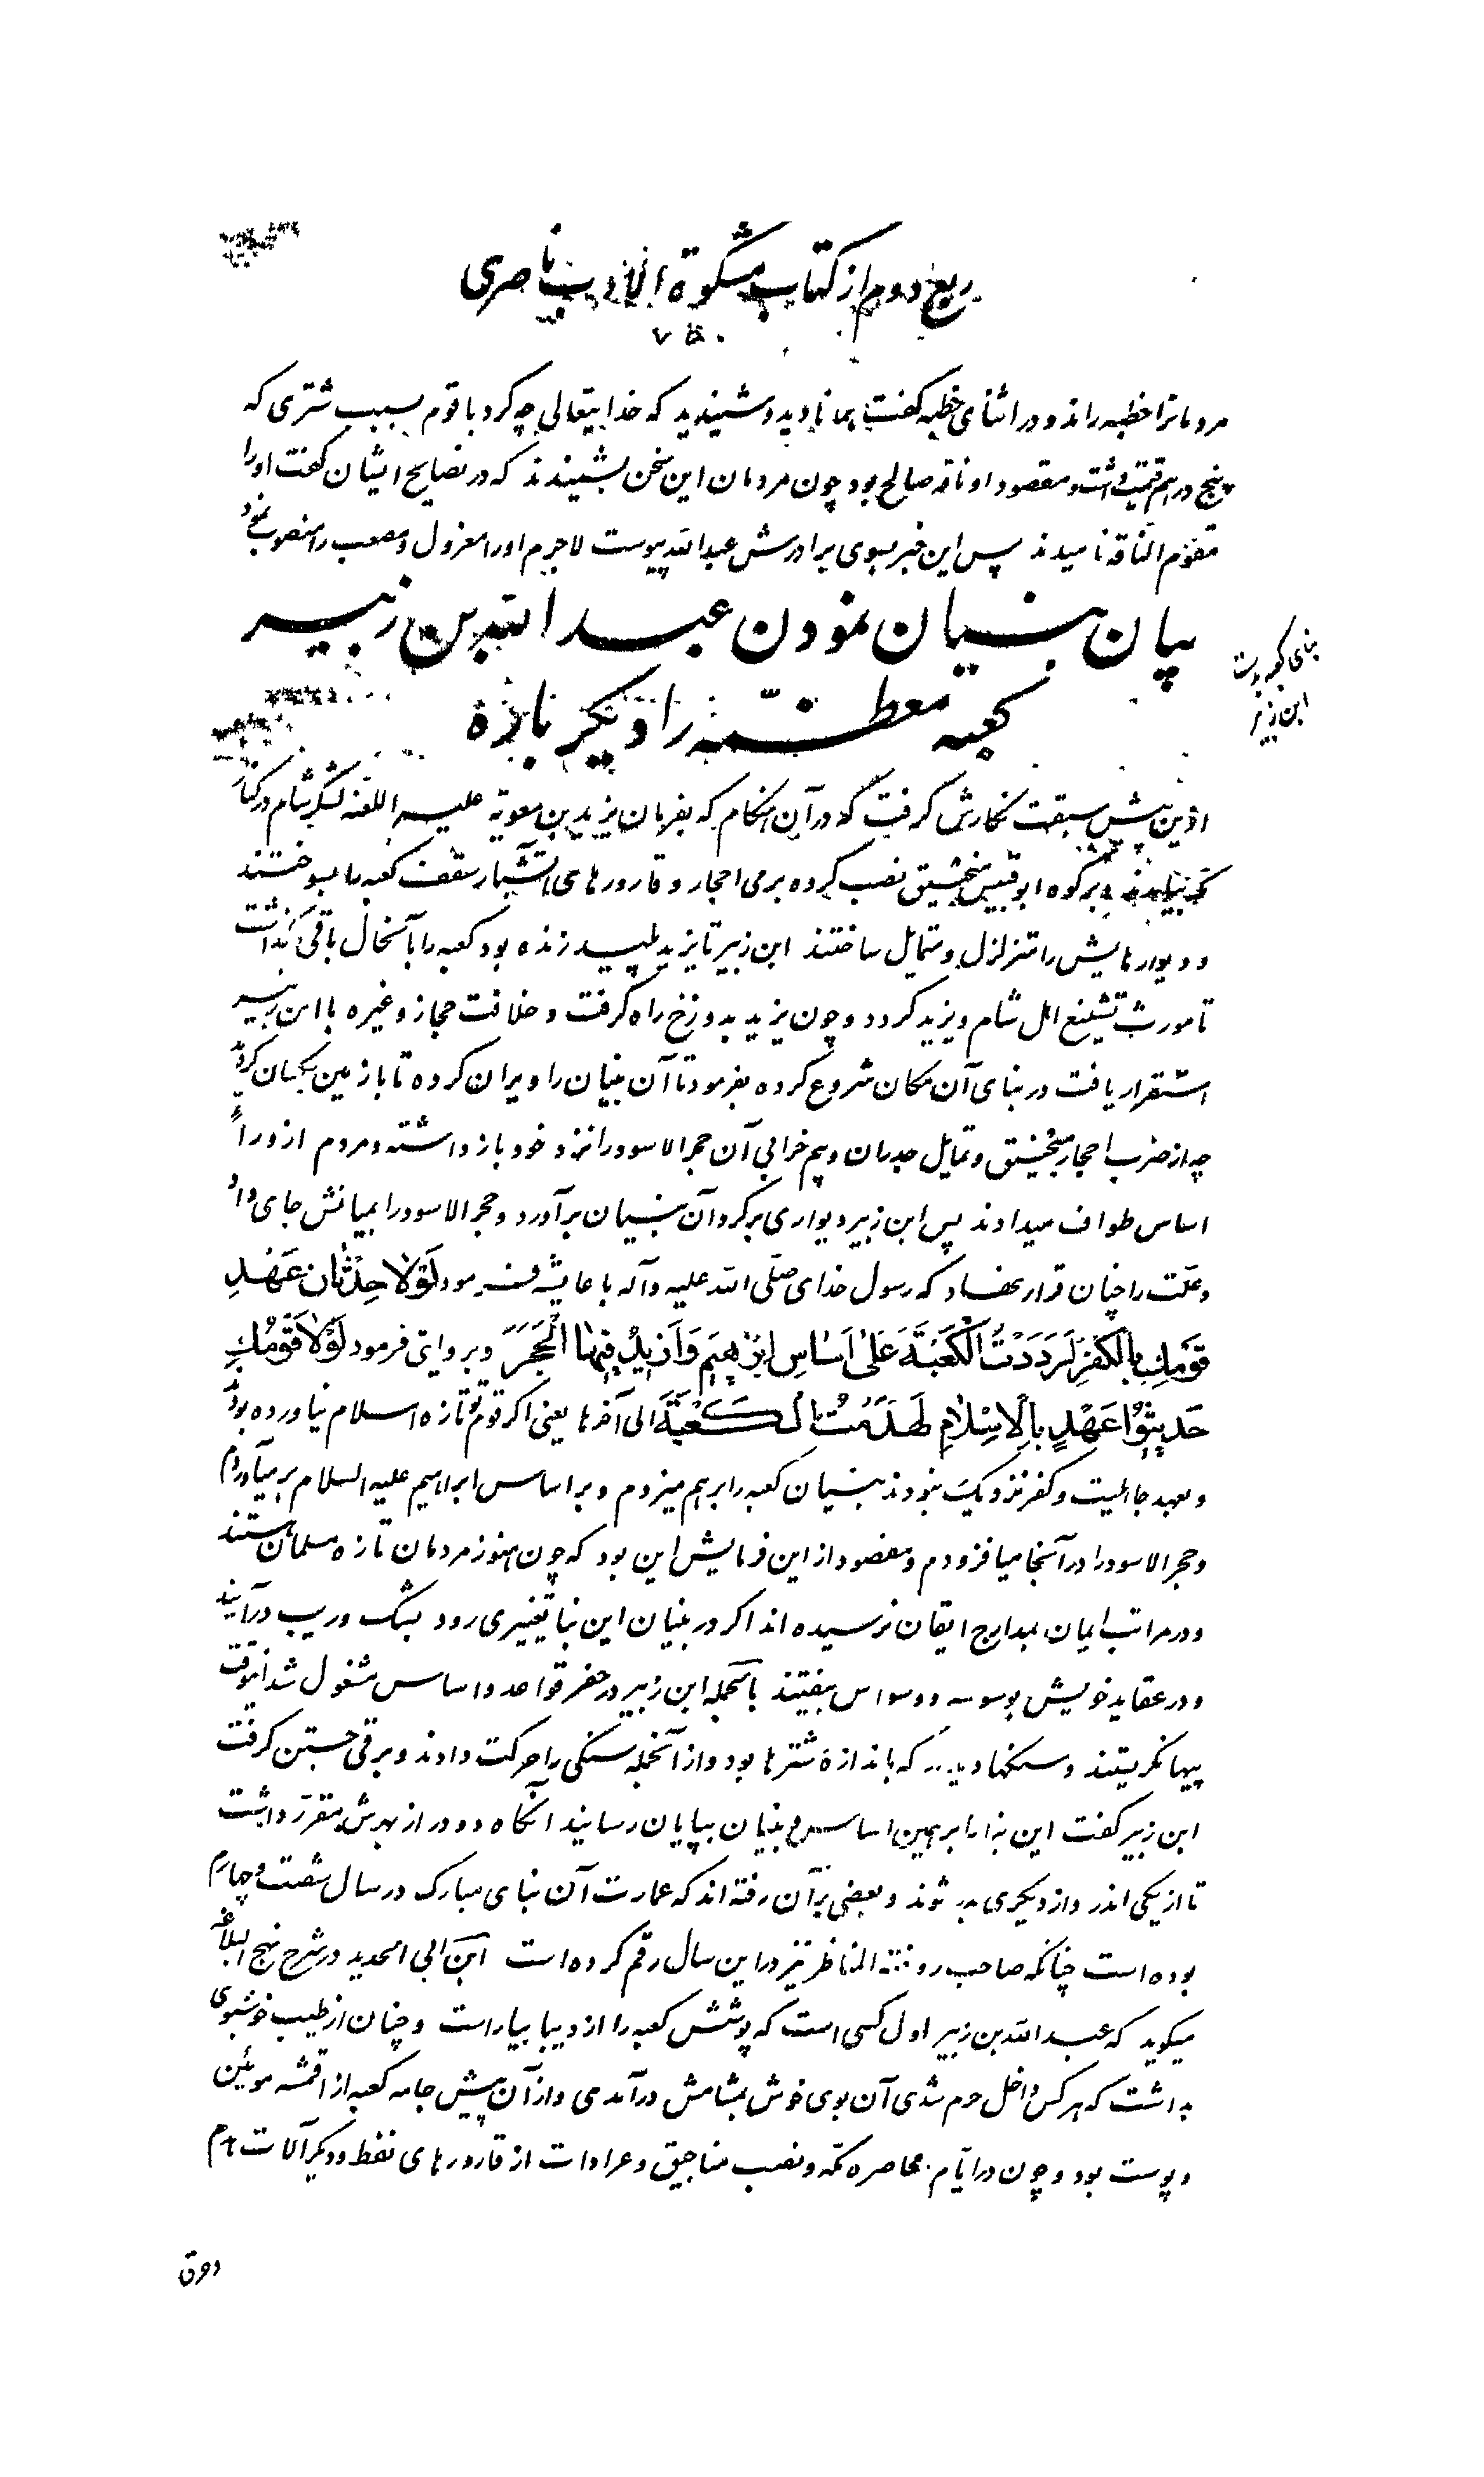 ربع دوم از کتاب مشکوة الادب ناصری
۷۵۰
مردمانرا خطبه راند و در اثنای خطبه گفت همانا دیدید و شنیدید که خدایتعالی چه کرد با قوم بسبب شتری که
پنج درهم قیمت داشت و مقصود او ناقه صالح بود چون مردمان این سخن بشنیدند که در نصایح ایشان گفت او را
مقوّم الناقه نامیدند پس این خبر بسوی برادرش عبدالله پیوست لاجرم او را معزول و مصعب را منصوب نمود
بیان بنیان نمودن عبدالله بن زبیر
کعبه معظّمه را دیگر باره
بنای کعبه بدست
ابن زبیر
ازین پیش سبقت نگارش گرفت که در آن هنگام که بفرمان یزید بن معویه علیه اللعنه لشکر شام در کنار
مکه بیامدند و بر کوه ابوقبیس منجنیق نصب کرده برمی احجار و قارورهای آتشبار سقف کعبه را بسوختند
و دیوارهایش را متزلزل و متمایل ساختند ابن زبیر تا یزید پلید زنده بود کعبه را بآنحال باقی گذاشت
تا مورث تشنیع اهل شام و یزید گردد و چون یزید بدوزخ راه گرفت و خلافت حجاز و غیره با ابن زبیر
استقرار یافت در بنای آن مکان شروع کرده بفرمود تا آن بنیان را ویران کرده تا با زمین یکسان کردند
چه از ضرب احجار منجنیق و تمایل جدران و بیم خرابی آن حجر الاسود را نزد خود باز داشته و مردم از ورای
اساس طواف میدادند پس ابن زبیر دیواری برگرد آن بنیان برآورد و حجر الاسود را بمیانش جای داد
و علت را چنان قرار نهاد که رسول خدای صلّی الله علیه و آله با عایشه فرمود لَوْلا حِدْثان عَهْدِ
قَوْمِكِ بِالكُفْرِ لَرَدَدْتُ الْكَعْبَةَ عَلىٰ اَسَاسِ اِبْرٰهِيمَ وَاَزِيدُ فِيهَا الْحَجَرَ و بروایتی فرمود لَوْلا قَوْمُكِ
حَدِيثُوا عَهْدٍ بِالْاِسْلامِ لَهَدَمْتُ الْكَعْبَةَ الی آخرها یعنی اگر قوم تو تازه اسلام نیاورده بودند
و بعهد جاهلیت و کفر نزدیک نبودند بنیان کعبه را برهم میزدم و بر اساس ابراهیم علیه السلام برمیآوردم
و حجر الاسود را در آنجا میافزودم و مقصود از این فرمایش این بود که چون هنوز مردمان تازه مسلمان هستند
و در مراتب ایمان بمدارج ایقان نرسیده اند اگر در بنیان این بنا تغییری رود بشک و ریب درآیند
و در عقاید خویش بوسوسه و وسواس بیفتند بالجمله ابن زبیر در حفر قواعد و اساس مشغول شد آنوقت
پیها نگریستند و سنگها دیدند که باندازهٔ شترها بود و از آنجمله سنگی را حرکت دادند و برقی جستن گرفت
ابن زبیر گفت این بنا را بر همین اساس و بنیان بپایان رسانید آنگاه دو در از بهرش مقرر داشت
تا از یکی اندر و از دیگری بدر شوند و بعضی بر آن رفته اند که عمارت آن بنای مبارک در سال شصت و چهارم
بوده است چنانکه صاحب روضة المناظر نیز در این سال رقم کرده است ابن ابی الحدید در شرح نهج البلاغه
میگوید که عبدالله بن زبیر اول کسی است که پوشش کعبه را از دیبا بیاراست و چنان از طیب خوشبوی
بداشت که هر کس داخل حرم شدی آن بوی خوش بمشامش درآمدی و از آن پیش جامه کعبه از اقمشه موئین
و پوست بود و چون در ایّام محاصره مکّه و نصب مناجیق و عرادات از قارورهای نفط و دیگر آلات هدم